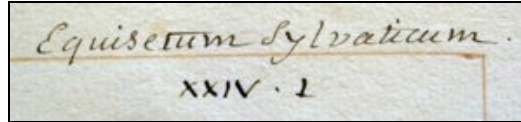 Equisetum Sylvaticum.
XXIV. 1